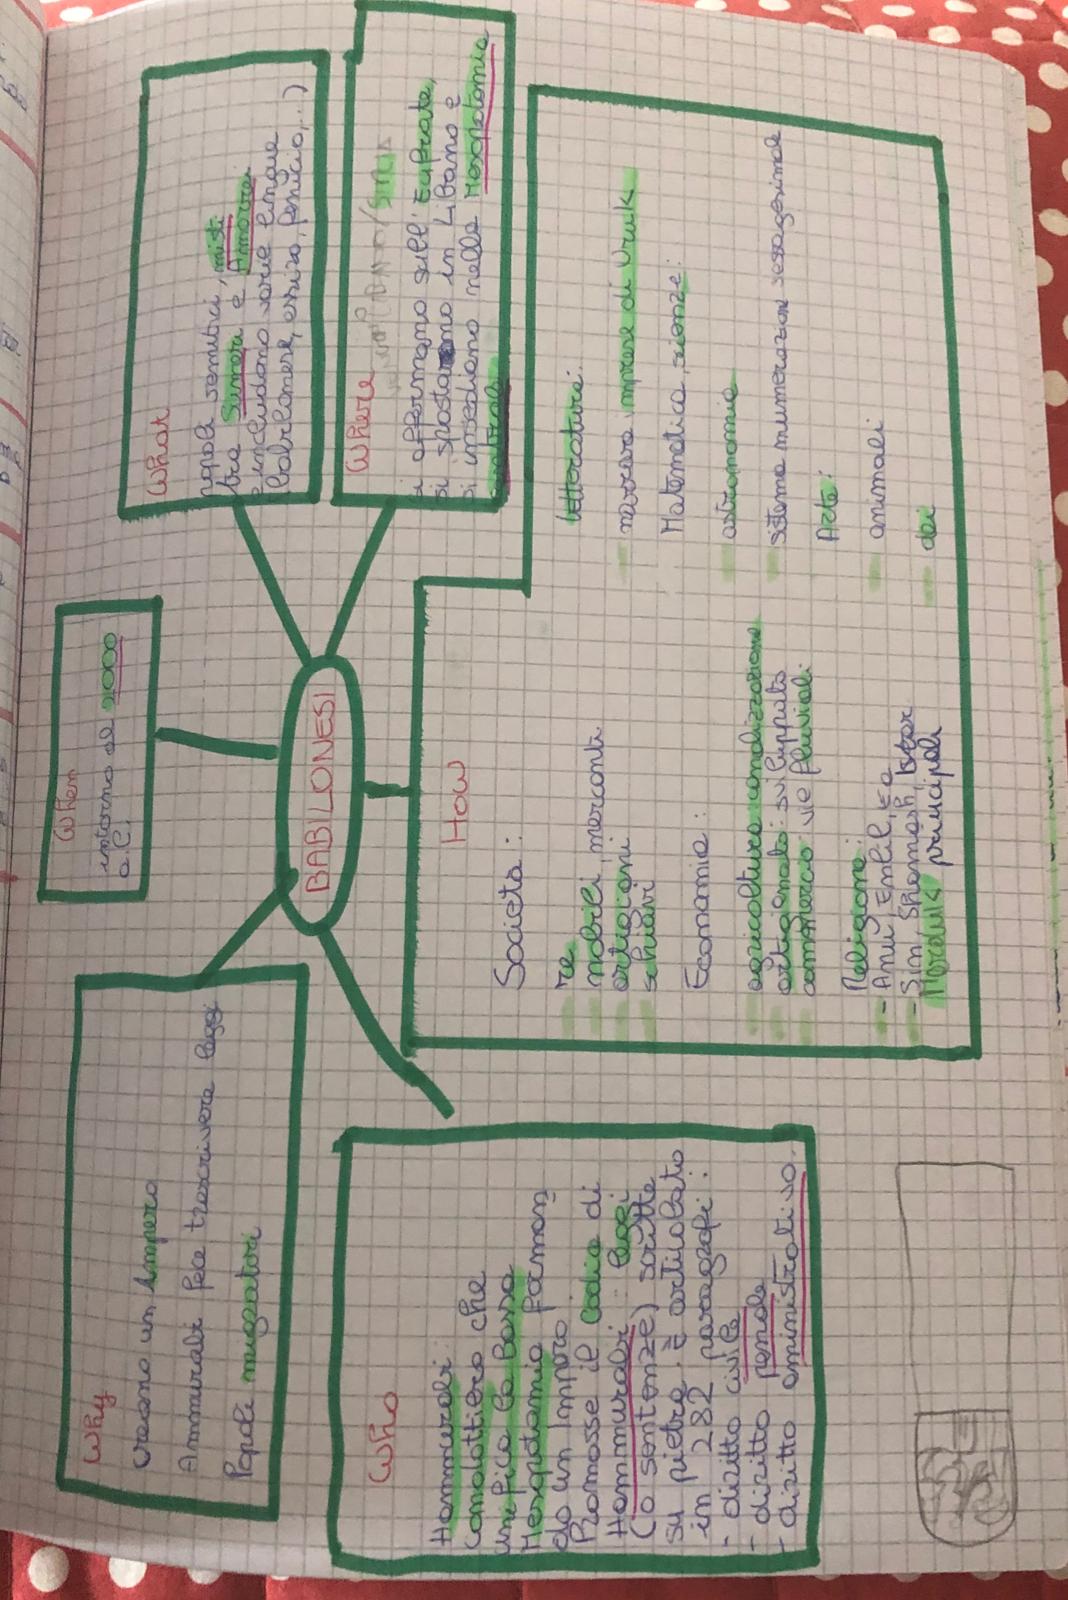 Why
creano un impero
Ammurabi fece trascrivere leggi
Popoli mugnatori
When
intorno al 2000
a.C.
What
popoli semitici, misti
tra Sumeri e Amorrei
includono varie lingue
(babilonese, assiro, fenicio,...)
BABILONESI
Where
si affermano sull'Eufrate,
si spostarono in Libano e
si insediano nella Mesopotamia
centrale
Who
Hammurabi:
condottiero che
unifica la Bassa
Mesopotamia forman
do un impero
Promosse il codice di
Hammurabi: leggi
(o sentenze) scritte
su pietra. È articolato
in 282 paragrafi:
- diritto civile
- diritto penale
- diritto amministrativo.
How
Società:
re
nobili, mercanti
artigiani
schiavi
Economia:
agricoltura: canalizzazione
artigianato: sviluppato
commercio: vie fluviali
Religione:
- Anu, Enlil, Ea
- Sin, Shamash, Ishtar
Marduk principali
Letteratura:
- imprese di Uruk
Matematica, scienze:
- astronomia
- sistema numerazione sessagesimale
Arte:
- animali
- dei